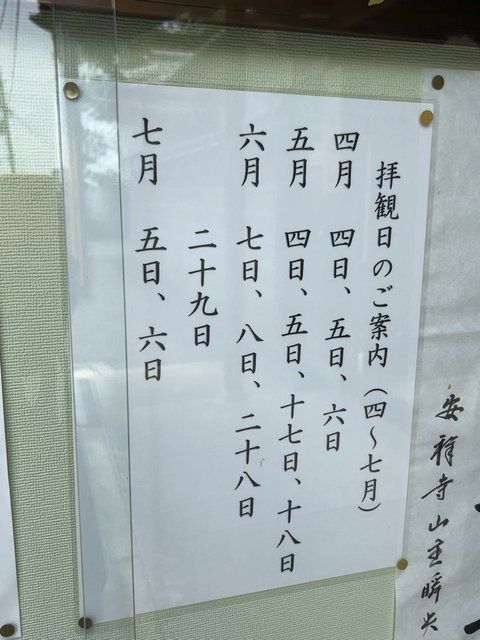 拝観日のご案内（四〜七月）
四月　四日、五日、六日
五月　四日、五日、十七日、十八日
六月　七日、八日、二十八日
二十九日
七月　五日、六日
安祥寺山主